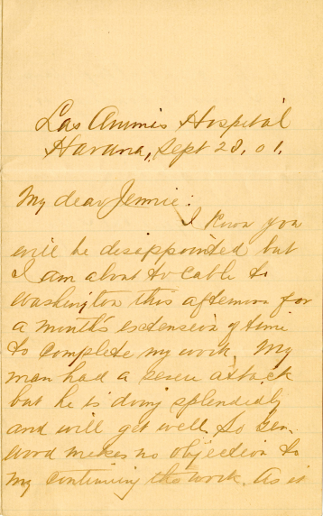 Las Animis Hospital
Havana, Sept 28, 01.
My dear Jennie:
I know you
will be disappointed but
I am about to cable to
Washington this afternoon for
a month's extension of time
to complete my work. My
man had a severe attack
but he is doing splendidly
and will get well. So Gen.
Wood makes no objection to
my continuing the work. As it